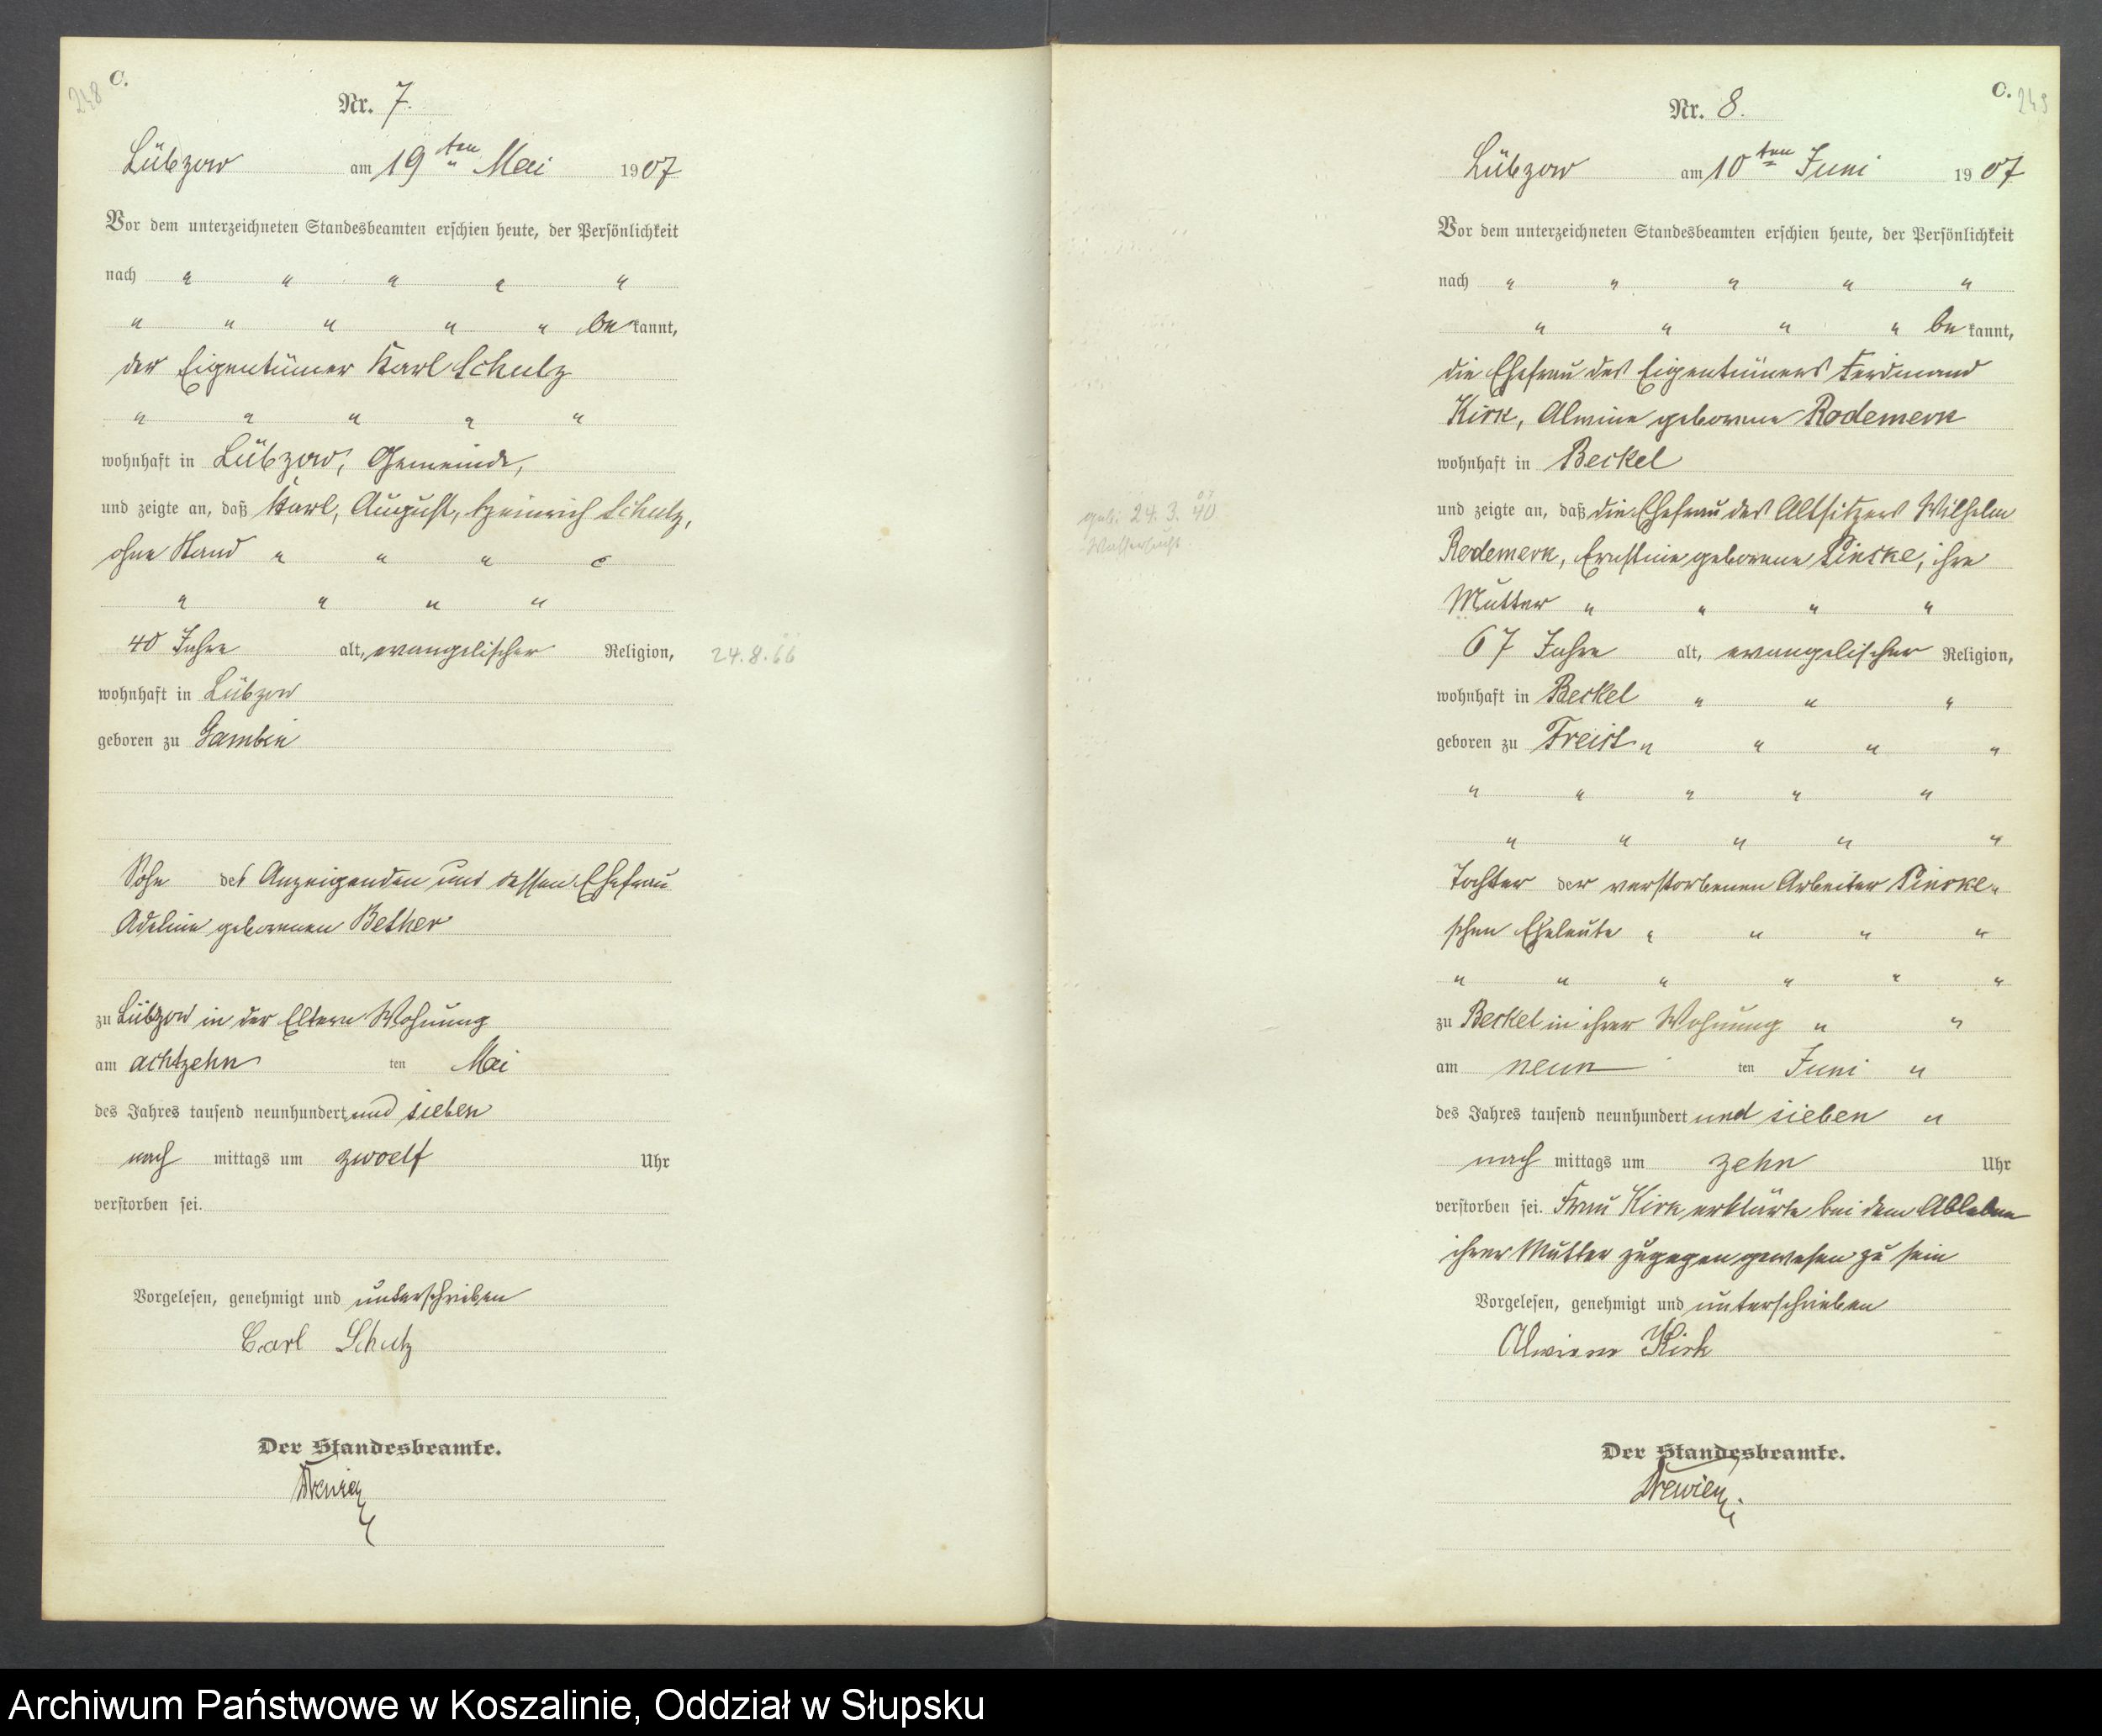 248
C.
Nr. 7.
Lübzow am 19ten Mai 1907
Vor dem unterzeichneten Standesbeamten erschien heute, der Persönlichkeit
nach " " " " "
" " " " " be kannt,
der Eigentümer Karl Schulz
" " " " "
wohnhaft in Lübzow, Gemeinde,
und zeigte an, daß Karl, August, Heinrich Schulz,
ohne Stand " " " "
" " " "
40 Jahre alt, evangelischer Religion,
24.8.66
wohnhaft in Lübzow
geboren zu Gambin
Sohn des Anzeigenden und dessen Ehefrau
Adeline geborenen Bether
zu Lübzow in der Eltern Wohnung
am achtzehn ten Mai
des Jahres tausend neunhundert und sieben
nach mittags um zwoelf Uhr
verstorben sei.
Vorgelesen, genehmigt und unterschrieben
Carl Schulz
Der Standesbeamte.
C.
249
Nr. 8.
Lübzow am 10ten Juni 1907
Vor dem unterzeichneten Standesbeamten erschien heute, der Persönlichkeit
nach " " " " "
" " " " be kannt,
die Ehefrau des Eigentümers Ferdinand
Kirk, Alwine geborene Rodemerk
wohnhaft in Beckel
und zeigte an, daß die Ehefrau des Altsitzers Wilhelm
Rodemerk, Ernstine geborene Pieske, ihre
Mutter " " " "
67 Jahre alt, evangelischer Religion,
geb. 24.3. 40
07
Wassersucht
wohnhaft in Beckel " " "
geboren zu Freist " " " "
" " " " "
" " " " "
Tochter der verstorbenen Arbeiter Pieske"
schen Eheleute " " " "
" " " " " "
zu Beckel in ihrer Wohnung " "
am neun ten Juni "
des Jahres tausend neunhundert und sieben "
nach mittags um zehn Uhr
verstorben sei. Frau Kirk erklärte bei dem Ableben
ihrer Mutter zugegen gewesen zu sein
Vorgelesen, genehmigt und unterschrieben
Alwine Kirk
Der Standesbeamte.
Archiwum Państwowe w Koszalinie, Oddział w Słupsku